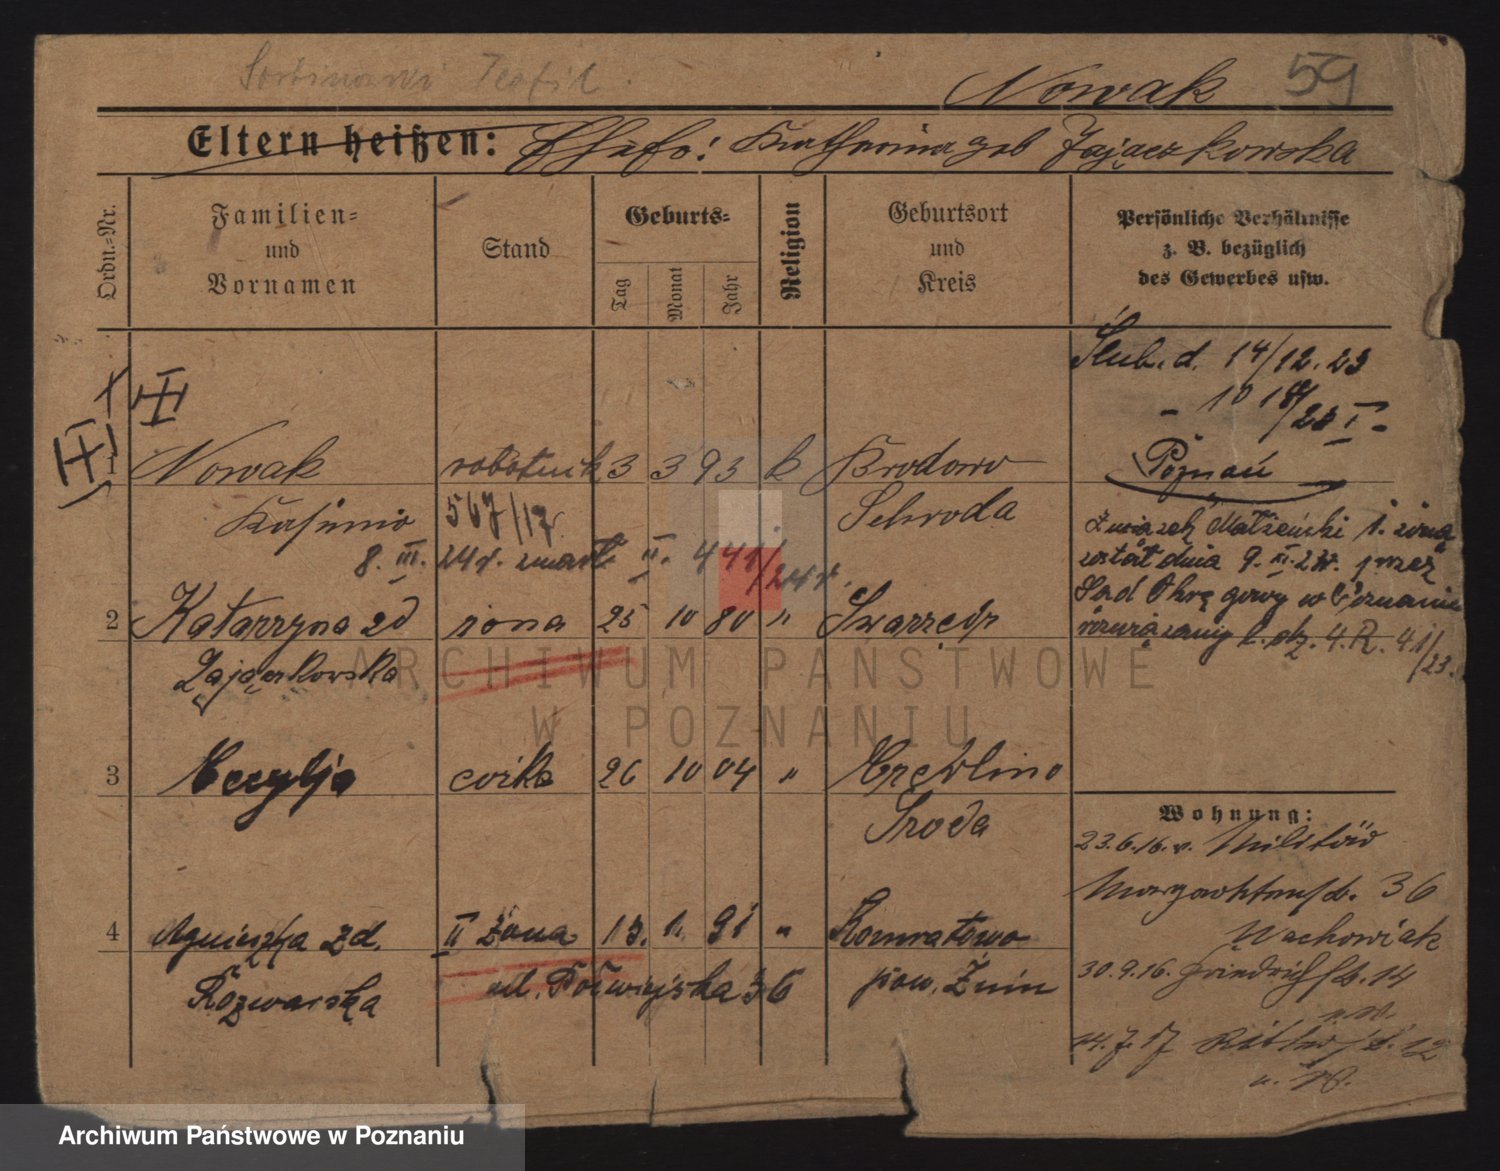 Nowak 59
Eltern heißen: Ehefr: Katharina geb Zajączkowska
Ordn.-Nr.
Familien- und Vornamen
Stand
Geburts-
Tag
Monat
Jahr
Religion
Geburtsort und Kreis
Persönliche Verhältnisse z. B. bezüglich des Gewerbes usw.
Ślub. d. 14/12. 23
Poznań
1 Nowak robotnik 3 3 93 k Brodowo
Kasimir 567/17 Schroda
8. III. 24 r. zmarł II. 441/24 r.
Związek Małżeński i. żoną
został dnia 9. II. 23r. przez
Sąd Okręgowy w Poznaniu
rozwiązany l. dz. 4. R. 41/23.
2 Katarzyna zd żona 25 10 80 " Swarzędz
Zajączkowska
3 Cecylja córka 26 10 04 "
Środa
Wohnung:
23.6.16. v. Militär
36
Wachowiak
4 Agnieszka zd. II żona 13. 1. 91 "
Rozwarska ul. Półwiejska 36 pow. Żnin
30.9.16. Friedrichstr. 14
14.7.17 Ritterstr. 12
ARCHIWUM PAŃSTWOWE
W POZNANIU
Archiwum Państwowe w Poznaniu